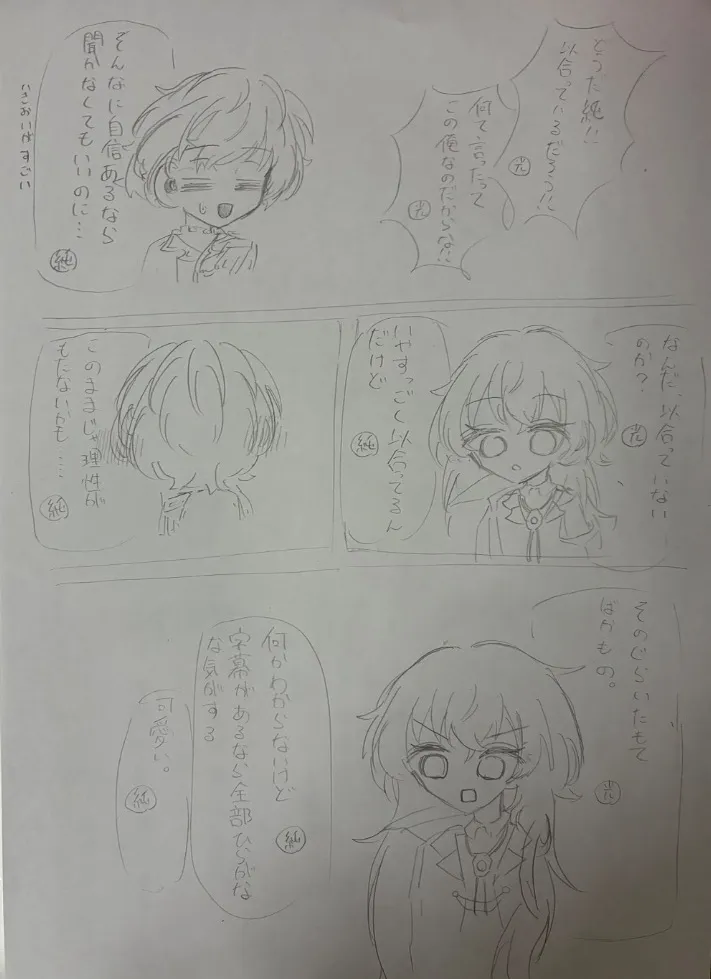 どうだ純!!
以合っているだろう!!
光
何て言ったって
この俺なのだからな!!
光
そんなに自信あるなら
聞かなくてもいいのに…
純
いきおいがすごい
なんだ、以合っていない
のか?
光
いやすっごく以合ってるん
だけど
純
このままじゃ理性が
もたないかも……
純
そのぐらいたもて
ばかもの。
光
何かわからないけど
字幕があるなら全部ひらがな
な気がする
純
可愛い。
純